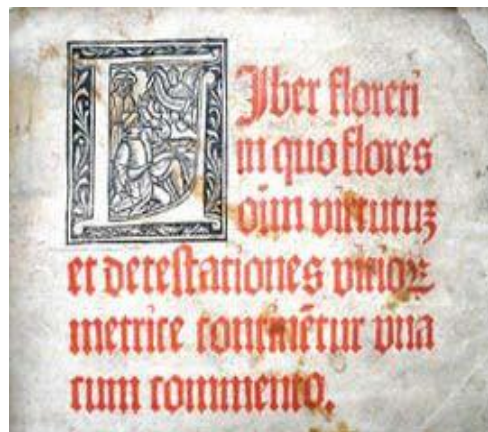 LIber floreti
in quo flores
oim̄ virtutuꝫ
et detestationes vitioꝝ
metrice continẽtur vna
cum commento.